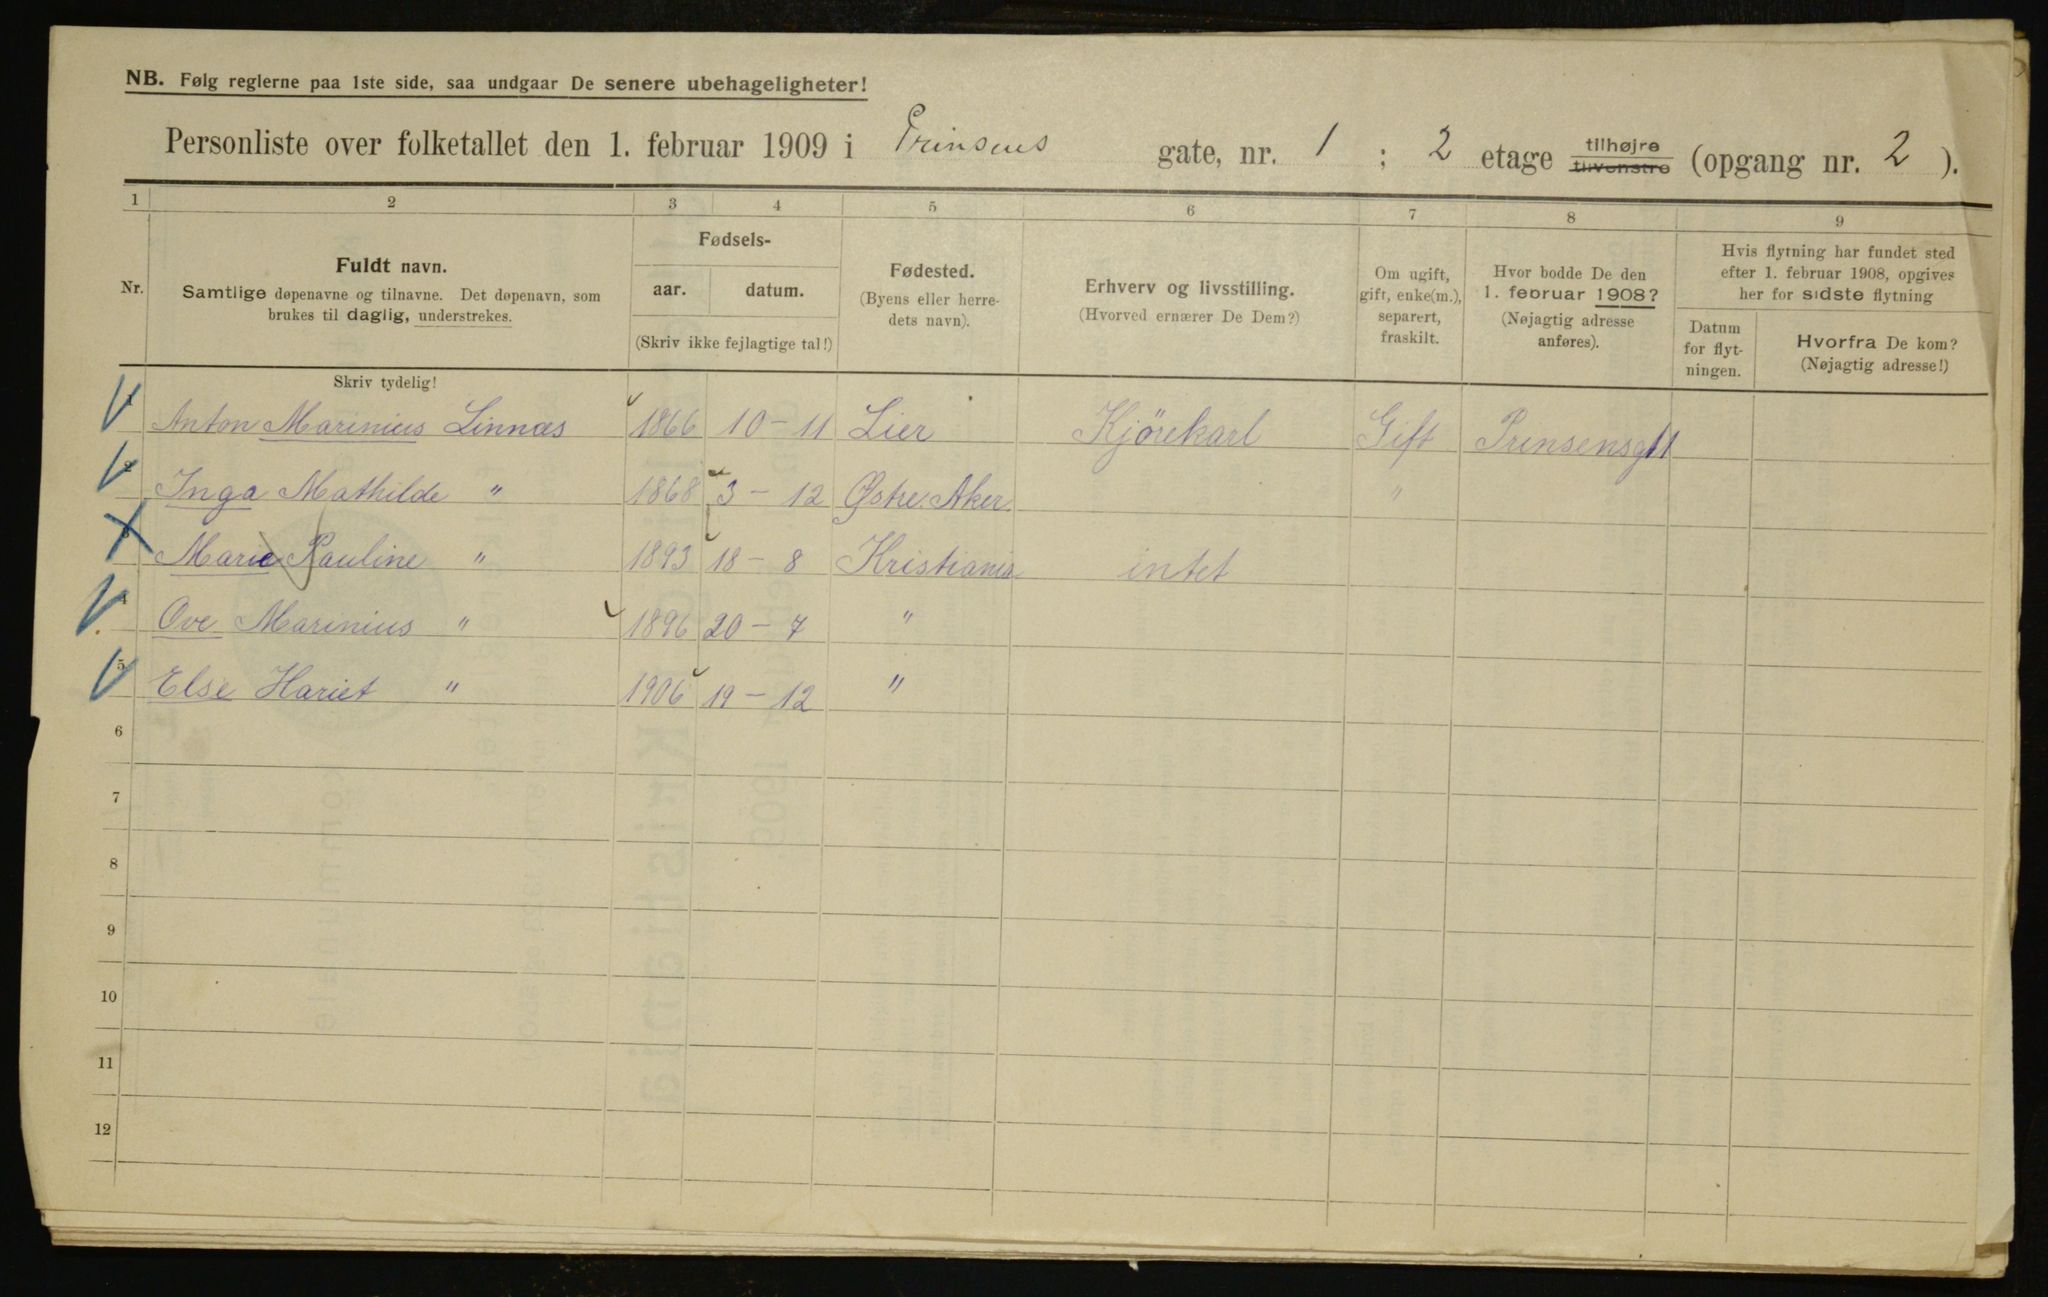 NB. Følg reglerne paa 1ste side, saa undgaar De senere ubehageligheter!
Personliste over folketallet den 1. februar 1909 i Prinsens gate, nr. 1 ; 2 etage tilhøjre tilvenstre (opgang nr. 2 ).
1 2 3 4 5 6 7 8 9
Nr.
Fuldt navn.
Samtlige døpenavne og tilnavne. Det døpenavn, som
brukes til daglig, understrekes.
Skriv tydelig!
Fødsels-
aar. datum.
(Skriv ikke fejlagtige tal!)
Fødested.
(Byens eller herre-
dets navn).
Erhverv og livsstilling.
(Hvorved ernærer De Dem?)
Om ugift,
gift, enke(m.),
separert,
fraskilt.
Hvor bodde De den
1. februar 1908?
(Nøjagtig adresse
anføres).
Hvis flytning har fundet sted
efter 1. februar 1908, opgives
her for sidste flytning
Datum
for flyt-
ningen.
Hvorfra De kom?
(Nøjagtig adresse!)
1 Anton Marinius Linnæs 1866 10-11 Lier Kjörekarl Gift Prinsensgt 1
2 Inga Mathilde " 1868 3-12 Østre Aker "
3 Marie Pauline " 1893 18-8 Kristiania intet
4 Ove Marinius " 1896 20-7 "
5 Else Hariet " 1906 19-12 "
6
7
8
9
10
11
12